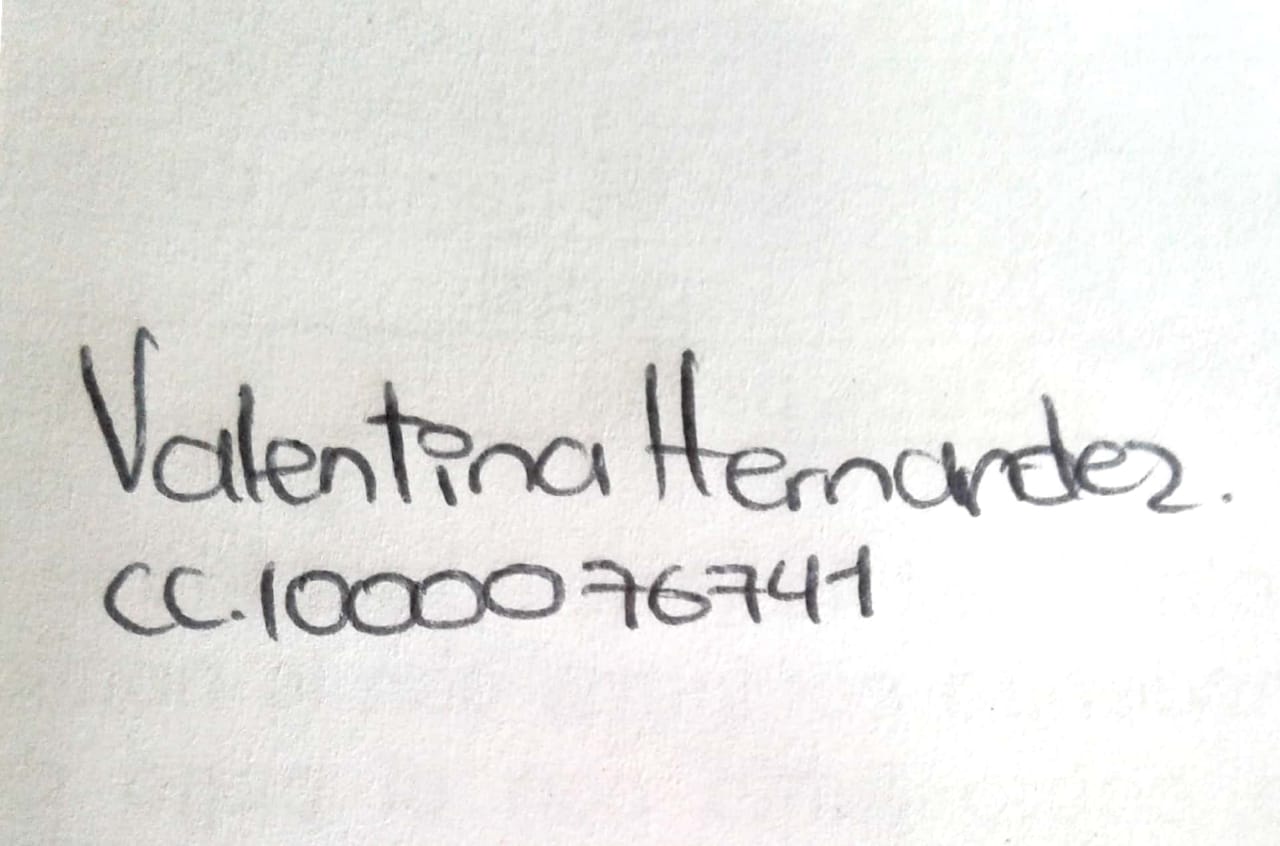 Valentina Hernandez.
CC.1000076741